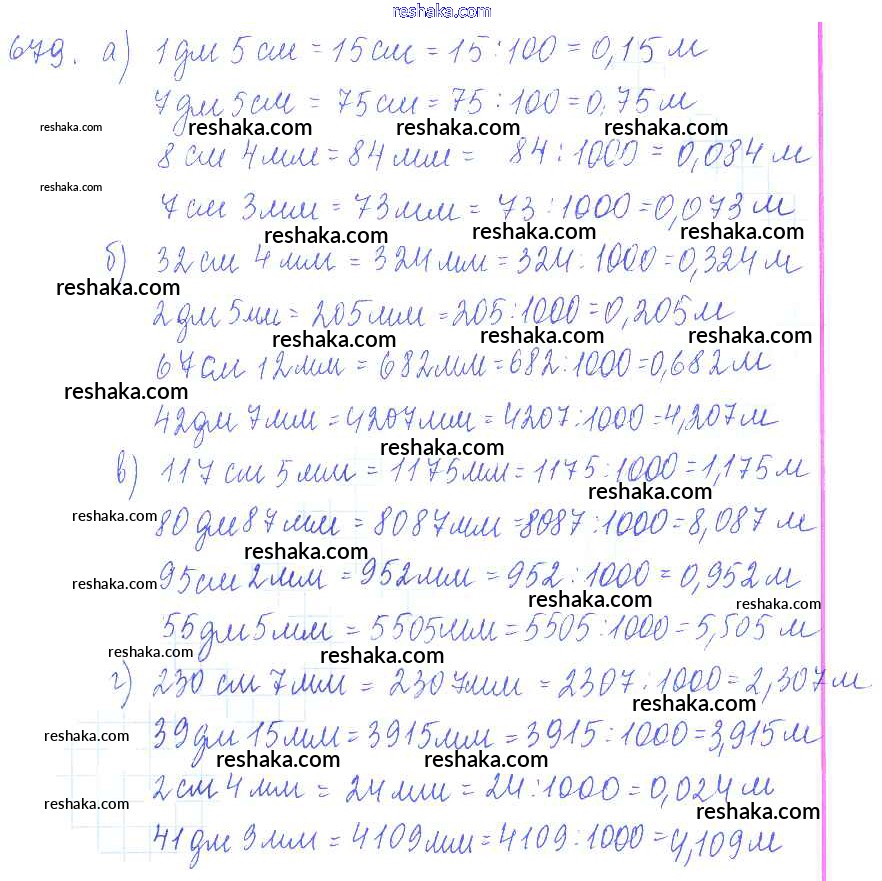 reshaka.com
679. а) 1дм 5см = 15см = 15:100 = 0,15 м
7дм 5см = 75см = 75:100 = 0,75 м
reshaka.com reshaka.com reshaka.com reshaka.com
8 см 4мм = 84 мм = 84:1000 = 0,084 м
reshaka.com
7см 3мм = 73мм = 73:1000 = 0,073 м
reshaka.com reshaka.com reshaka.com
б) 32см 4мм = 324мм = 324:1000 = 0,324 м
reshaka.com
2дм 5мм = 205мм = 205:1000 = 0,205м
reshaka.com reshaka.com reshaka.com
67см 12мм = 682мм = 682:1000 = 0,682 м
reshaka.com
42дм 7мм = 4207мм = 4207:1000 = 4,207м
reshaka.com
в) 117 см 5мм = 1175мм = 1175:1000 = 1,175 м
reshaka.com
reshaka.com 80 дм 87мм = 8087мм = 8087:1000 = 8,087 м
reshaka.com
reshaka.com 95см 2мм = 952мм = 952:1000 = 0,952 м
reshaka.com reshaka.com
55дм 5мм = 5505мм = 5505:1000 = 5,505 м
reshaka.com reshaka.com
г) 230 см 7мм = 2307мм = 2307:1000 = 2,307 м
reshaka.com
reshaka.com 39дм 15мм = 3915мм = 3915:1000 = 3,915 м
reshaka.com reshaka.com
2см 4мм = 24мм = 24:1000 = 0,024 м
reshaka.com reshaka.com
41 дм 9мм = 4109мм = 4109:1000 = 4,109 м